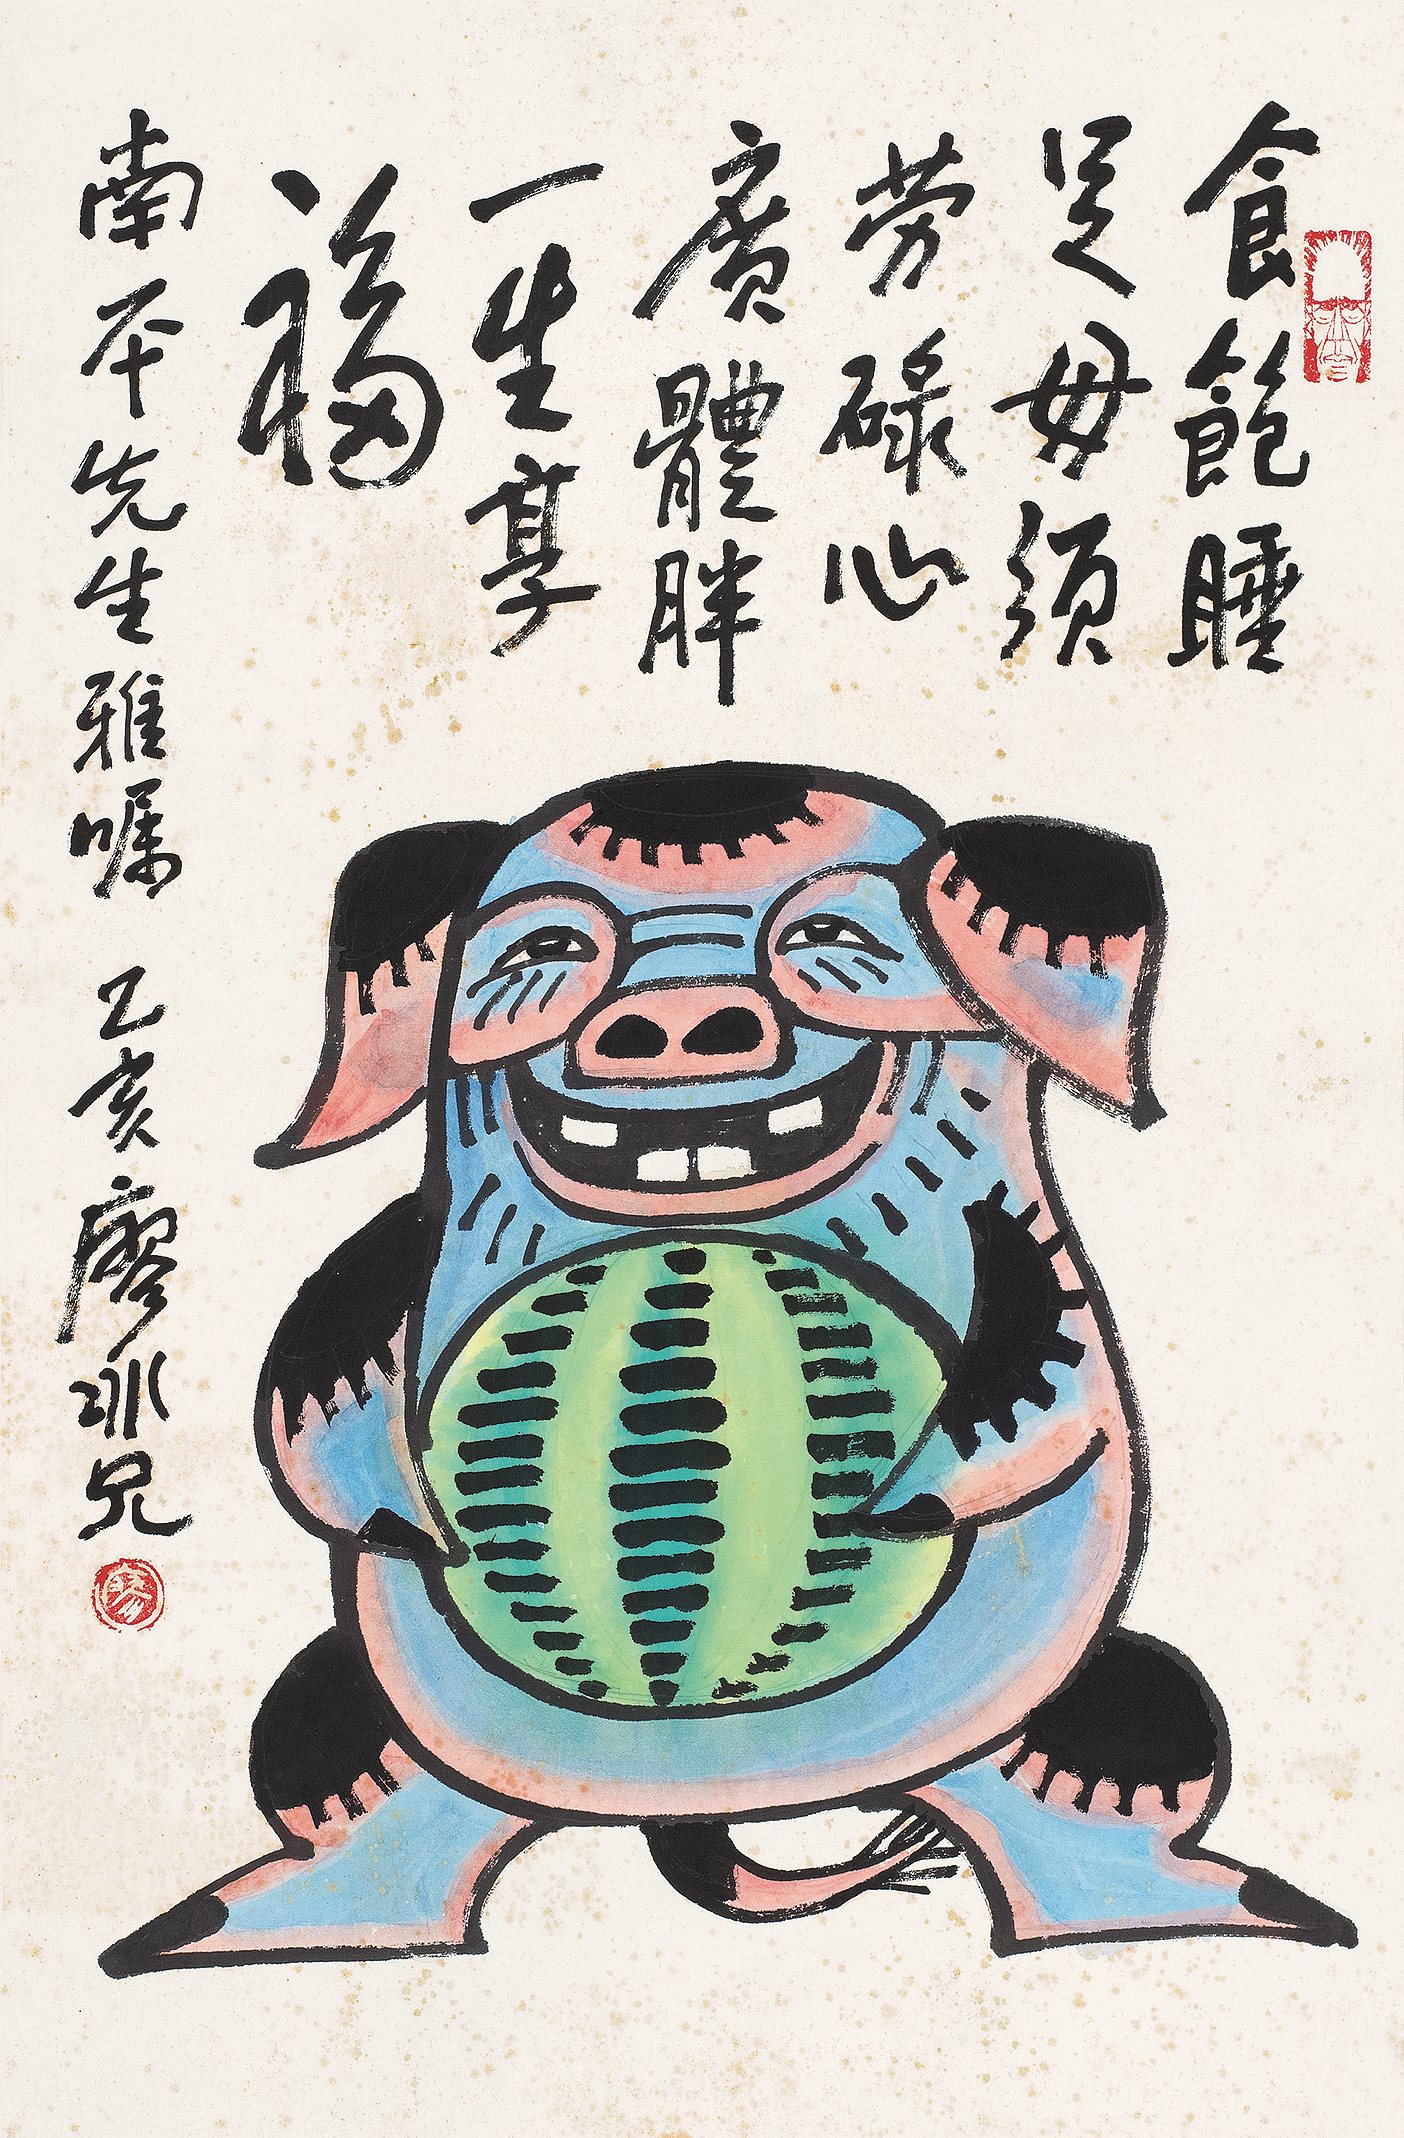 食飽睡
足毋須
劳碌心
廣體胖
一生享
福
南平先生雅嘱 乙亥 廖冰兄